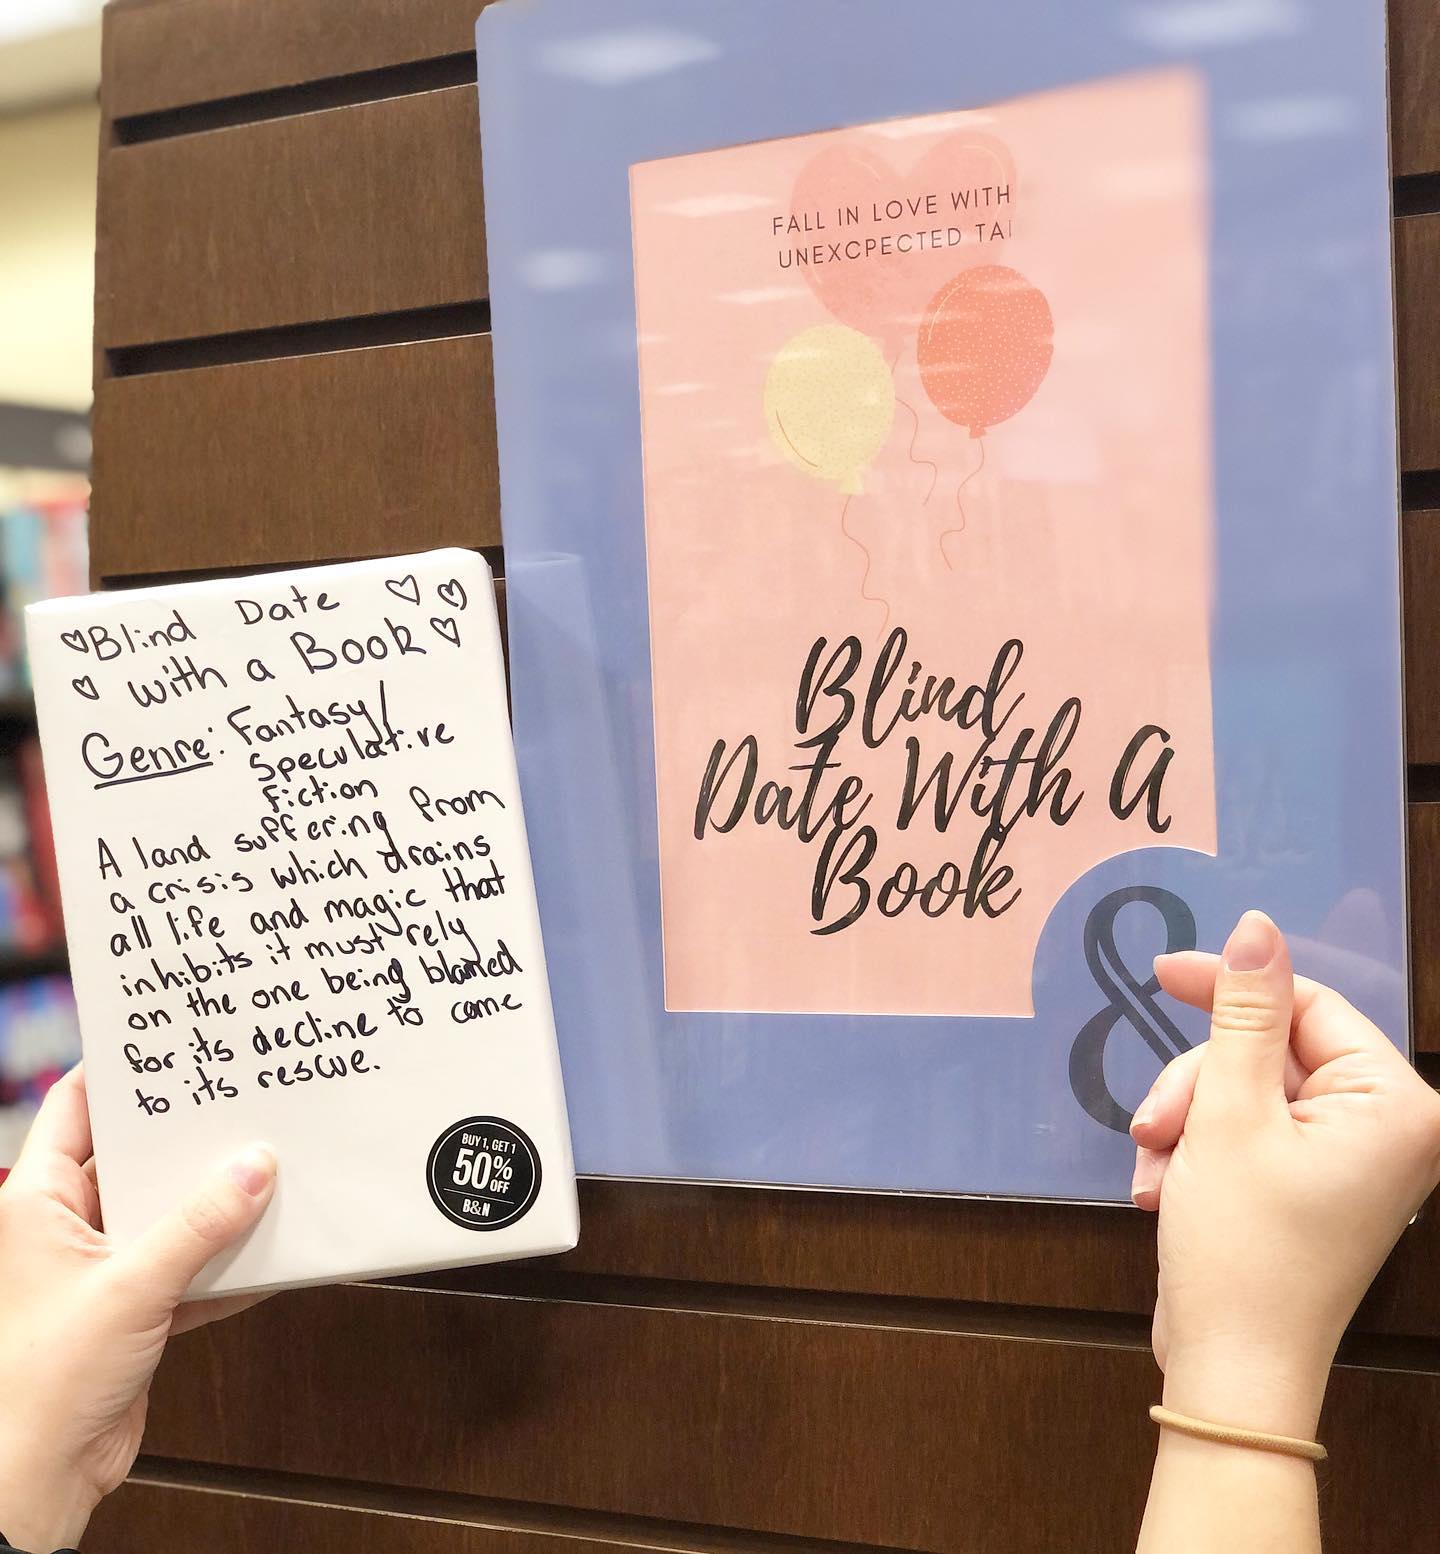 Blind Date
with a Book
Genre: Fantasy/
Speculative
Fiction
A land suffering from
a crisis which drains
all life and magic that
inhibits it must rely
on the one being blamed
for its decline to come
to its rescue.
BUY 1, GET 1
50%
OFF
B&N
FALL IN LOVE WITH
UNEXCPECTED TAI
Blind
Date With A
Book
&